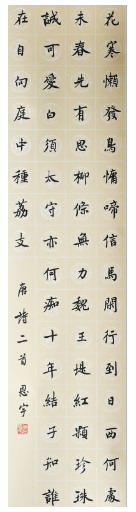 花寒懶發鳥慵啼信馬閑行到日西何處
未春先有思柳條無力魏王堤紅顆珍珠
誠可愛白須太守亦何痴十年結子知誰
在自向庭中種荔支 唐詩二首